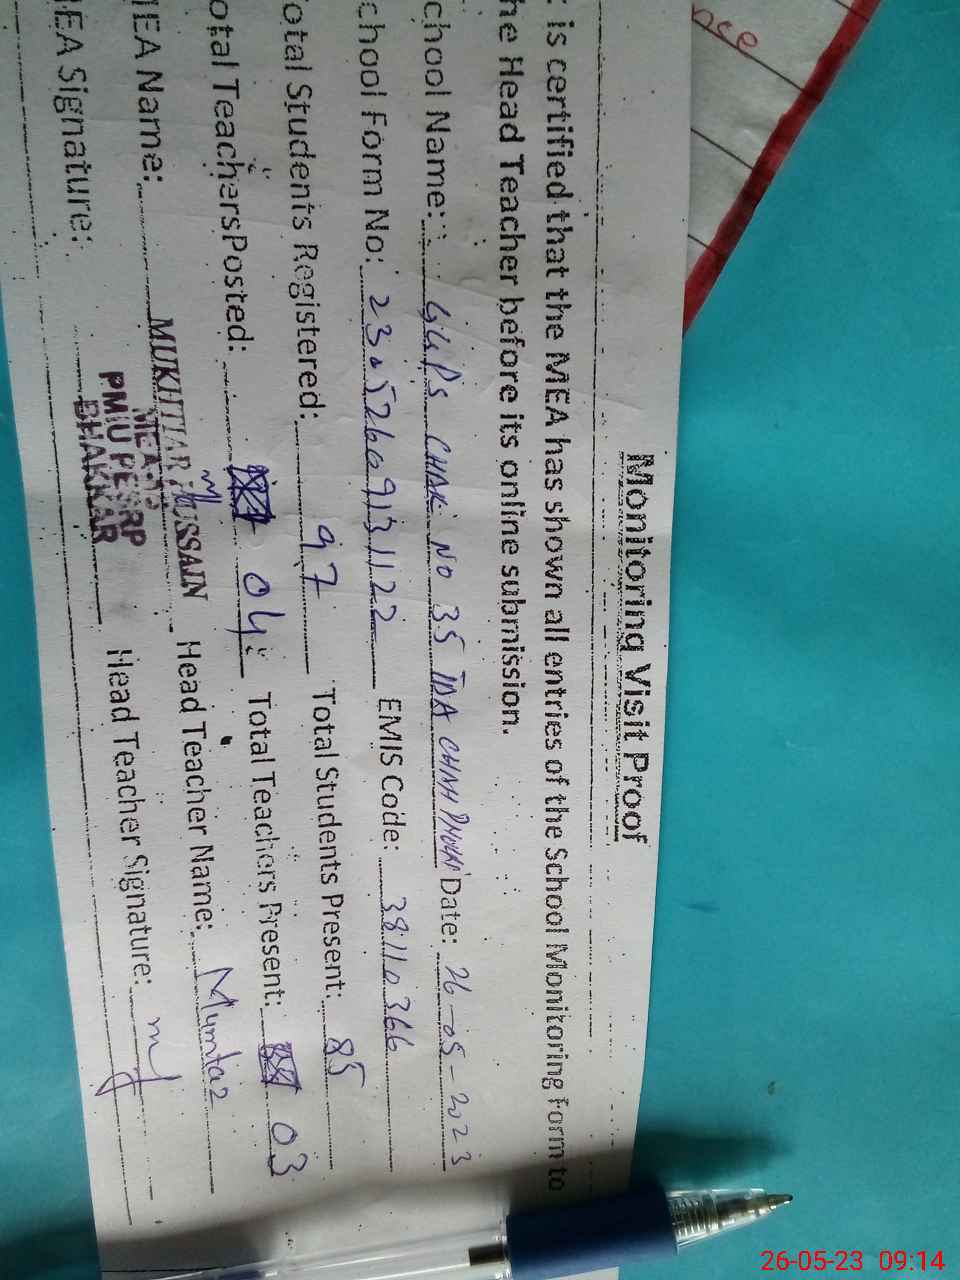 nce
Monitoring Visit Proof
: is certified that the MEA has shown all entries of the School Monitoring form to
he Head Teacher before its online submission.
chool Name: GGPS CHAK NO 35 TDA Date: 26-05-2023
chool Form No: 2305260913122 EMIS Code: 38110366
otal Students Registered: 97 Total Students Present: 85
otal TeachersPosted: 04 Total Teachers Present: 03
IEA Name: MUKHTIAR HUSSAIN Head Teacher Name: Mumtaz
MEA-
PMIU PESRP
BHAKKAR
IEA Signature: Head Teacher Signature:
26-05-23 09:14